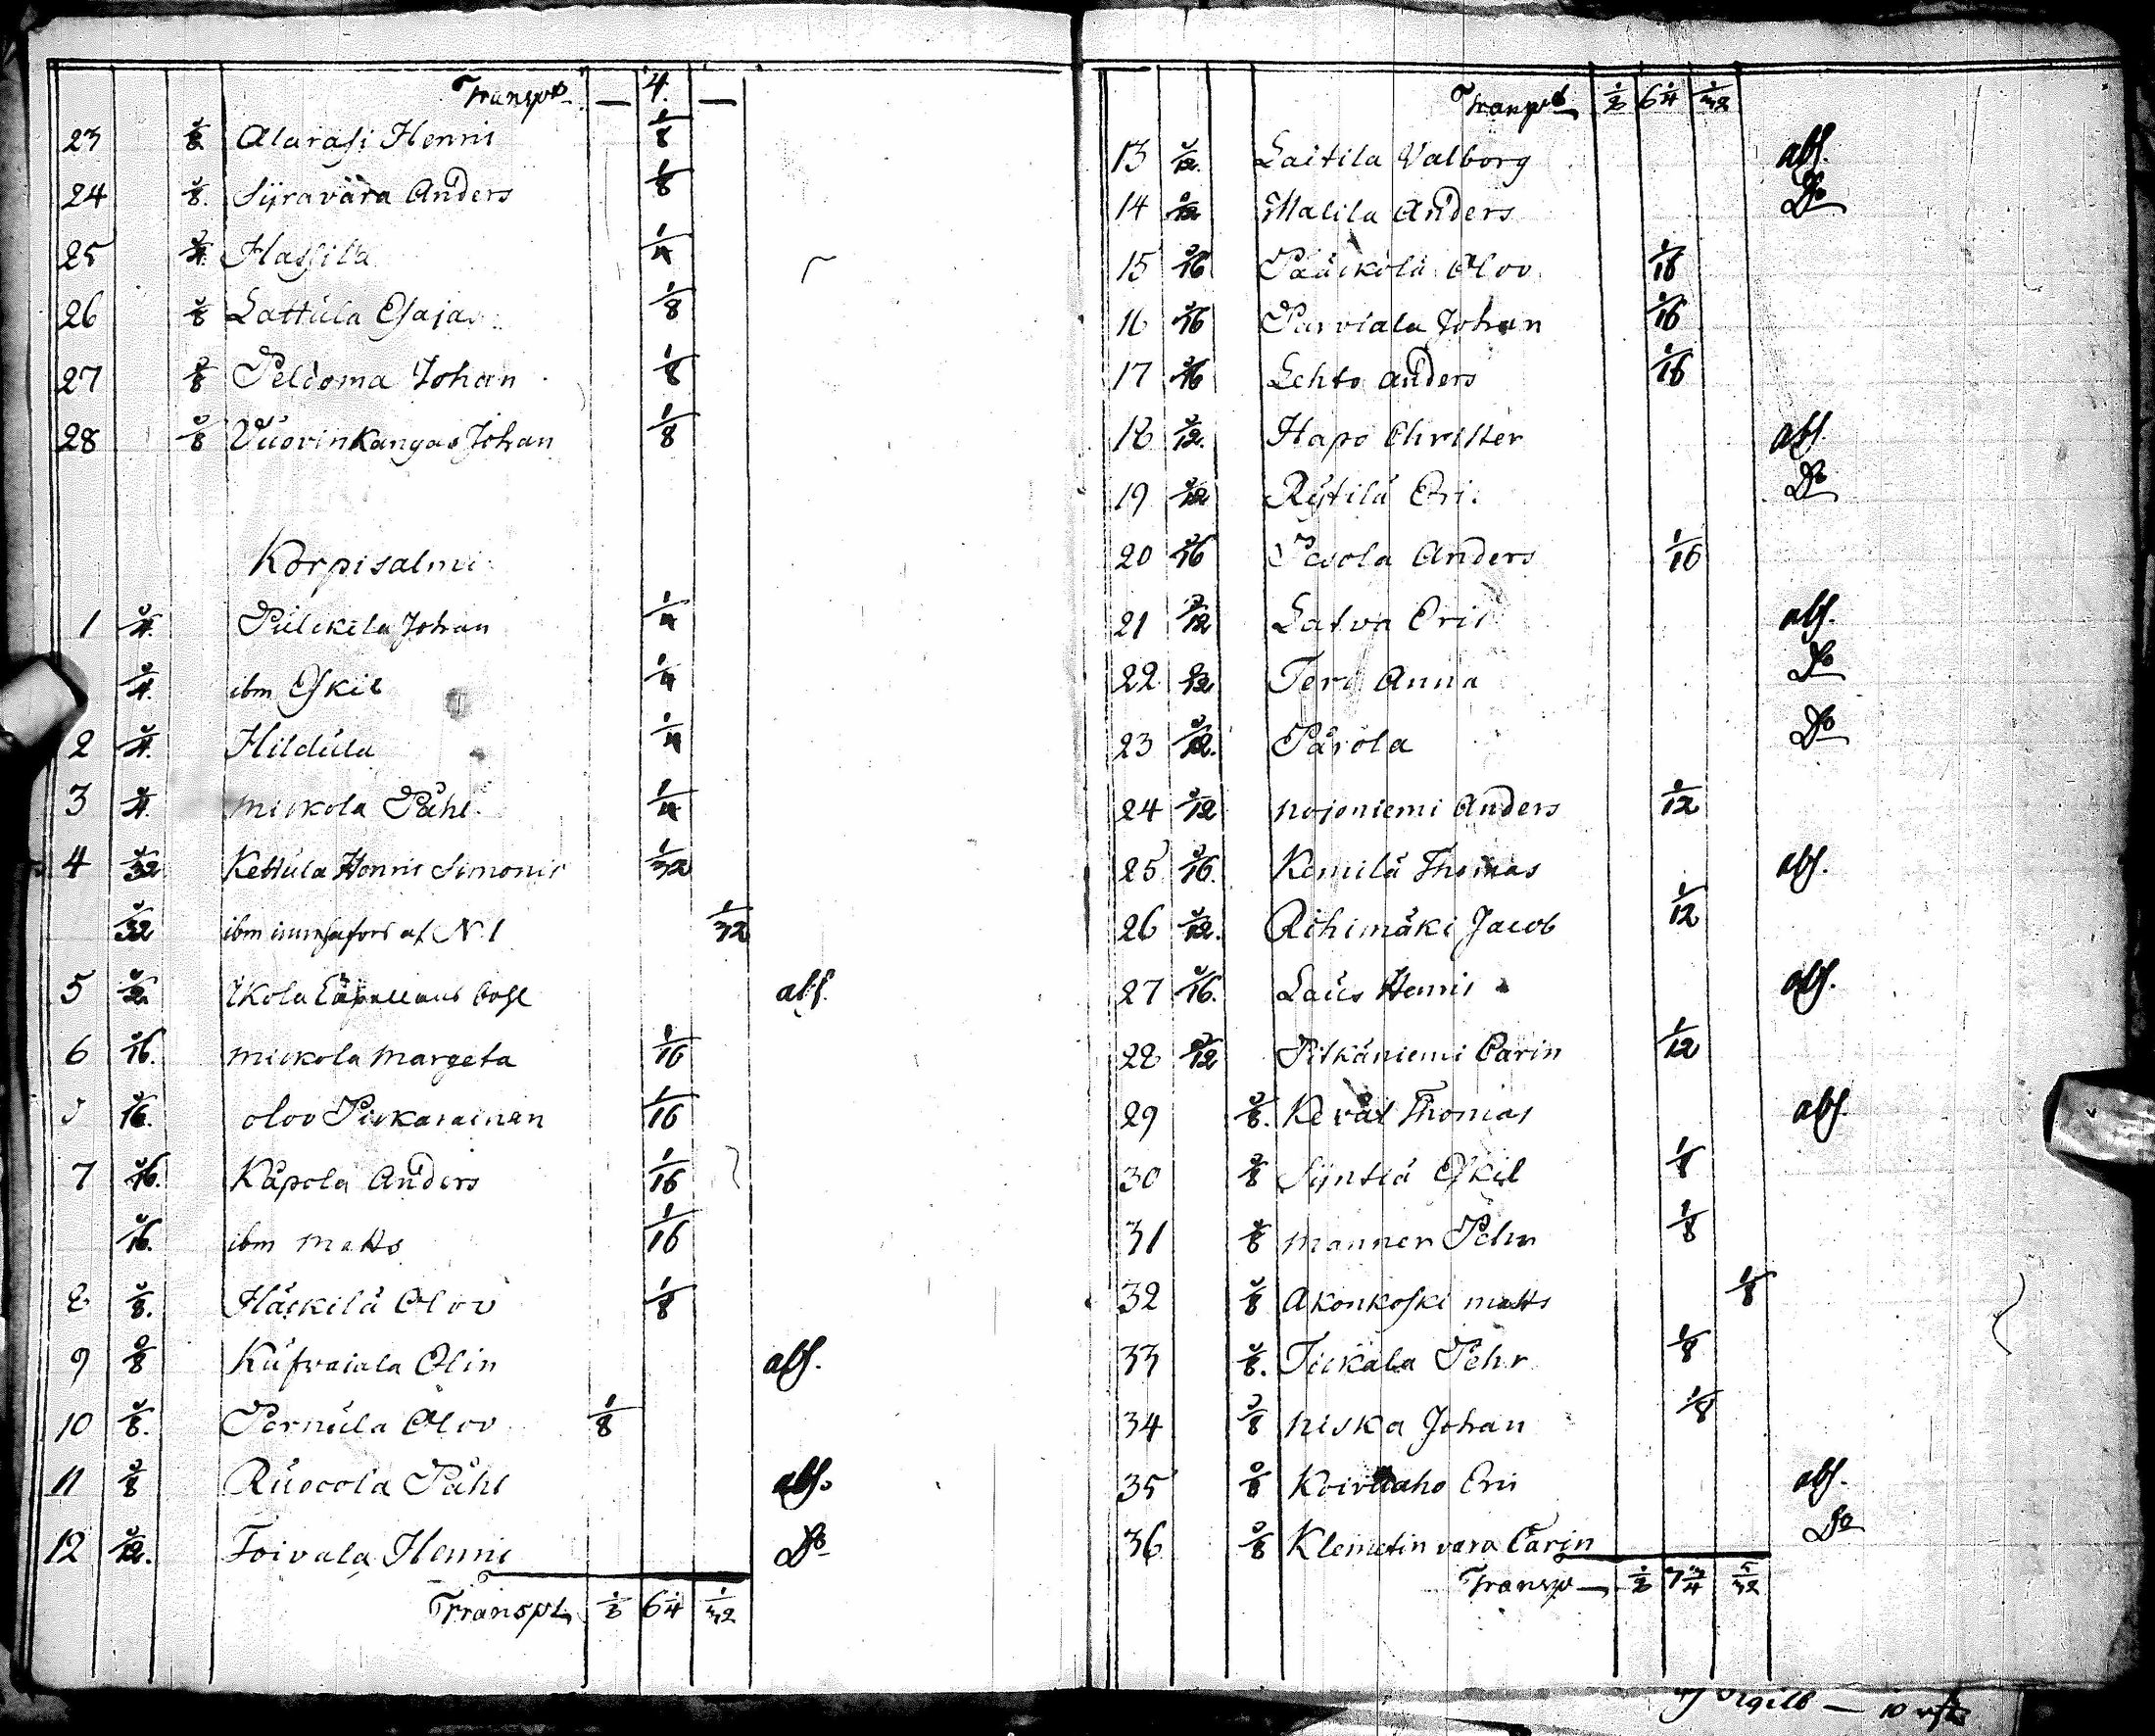 Transpt — 4. —
23 1/8 Alarasi Henric 1/8
24 1/8. Sijravära Anders 1/8
25 1/4. Hassila 1/4
26 1/8 Lattula Esajas 1/8
27 1/8 Peldoma Johan 1/8
28 1/8 Vuorinkangas Johan 1/8
Korpisalmi
1 1/4. Johan 1/4
1/4. ibm Eskil 1/4
2 1/4. Hildula 1/4
3 1/4. Mickola Påhl 1/4
4 1/32 Kettula Henric Simonis 1/32
1/32 ibm af N. 1 1/32
5 abs.
6 1/16. Mickola Margeta 1/16
1/16. Olov 1/16
7 1/16. Käpola Anders 1/16
1/16. ibm Matts 1/16
8 1/8. Häckilä Olov 1/8
9 1/8 Elin abs.
10 1/8. Pernula Olov 1/8
11 1/8 Ruocola Påhl abs.
12 1/12. Toivala Henric Do
Transpt 1/8 6 1/4 1/32
Transpt 1/8 6 1/4 1/32
13 1/12. Laitila Valborg abs.
14 1/12 Malila Anders Do
15 1/16 Pääckölä Olov 1/16
16 1/16 Parviala Johan 1/16
17 1/16 Lehto Anders 1/16
18 1/12. Hapo Christer abs.
19 1/12 Rytilä Eric Do
20 1/16 Pesola Anders 1/16
21 1/12 Latva Eric abs.
22 1/12 Tero Anna Do
23 1/12. Parola Do
24 1/12 Nojoniemi Anders 1/12
25 1/16. Kemilä Thomas abs.
26 1/12. Rihimäki Jacob 1/12
27 1/16. Laus Henric abs.
28 1/12 Pitkäniemi Carin 1/12
29 1/8. Keväl Thomas abs.
30 1/8 Eskil 1/8
31 1/8 Manner Pehr 1/8
32 1/8 Akonkoski Matts 1/8
33 1/8. Tickala Pehr 1/8
34 1/8 Niska Johan 1/8
35 1/8 Koivuaho Eric abs.
36 1/8 Klemetinvara Carin Do
Transp 1/8 7 3/4 5/32